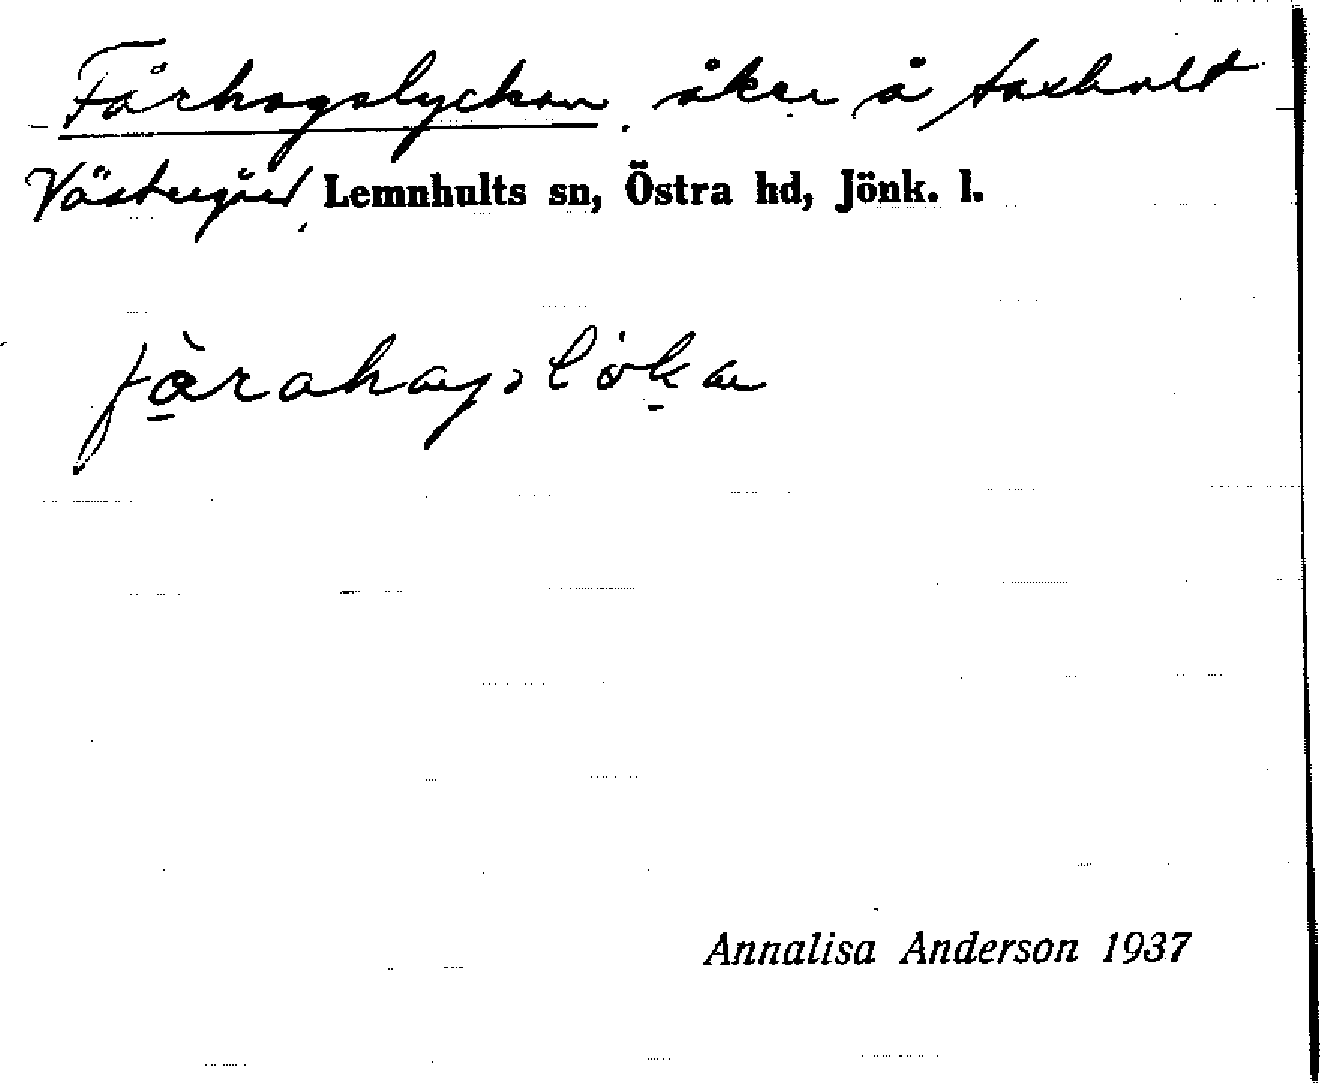 Fårhagslyckan, åker å Foxhult
Västergård, Lemnhults sn, Östra hd, Jönk. l.
fàrahagslökan
Annalisa Anderson 1937